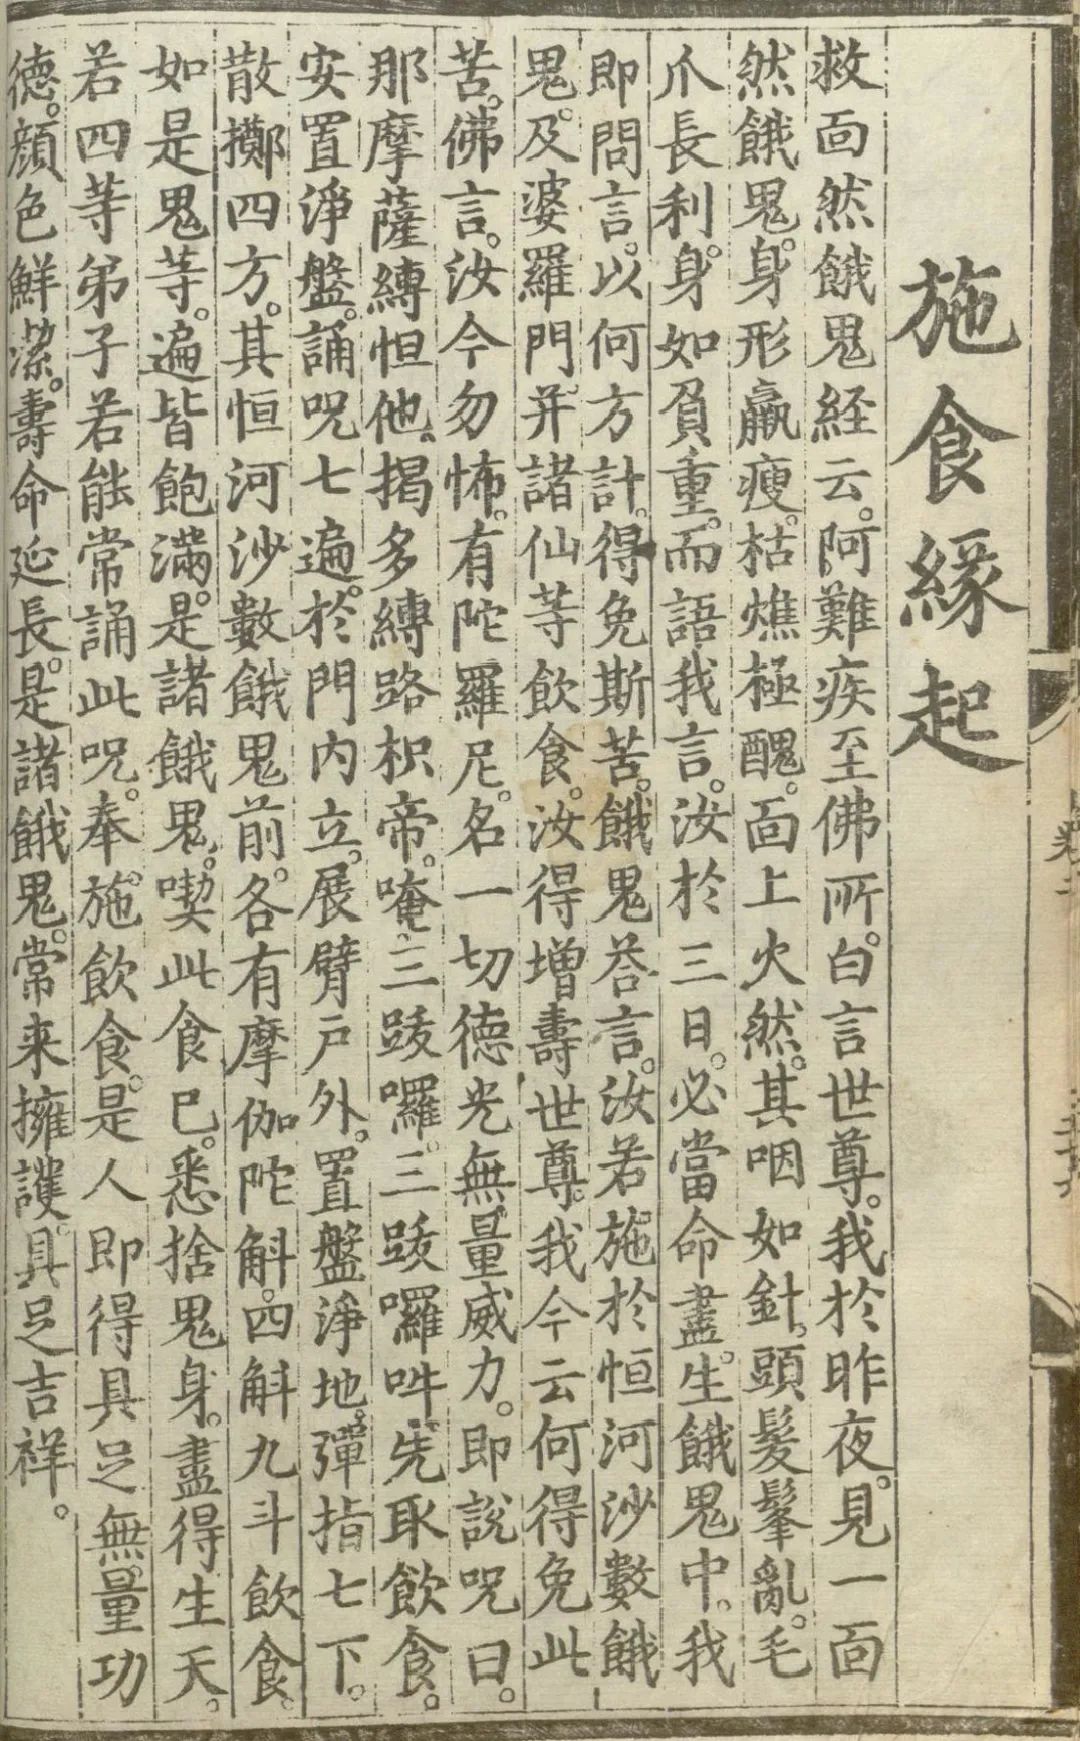 施食緣起
救面然餓鬼経云。阿難疾至佛所。白言世尊。我於昨夜。見一面
然餓鬼。身形羸瘦。枯燋極醜。面上火然。其咽如針。頭髮髼亂。毛
爪長利。身如負重。而語我言。汝於三日。必當命盡。生餓鬼中。我
即問言。以何方計。得免斯苦。餓鬼荅言。汝若施於恒河沙數餓
鬼。及婆羅門。并諸仙等飲食。汝得增壽世尊。我今云何得免此
苦。佛言。汝今勿怖。有陀羅尼。名一切德光無量威力。即說呪曰。
那摩薩縛怛他。揭多縛路枳帝。唵。三跋囉。三跋囉吽。先取飲食。
安置淨盤。誦呪七遍。於門內立。展臂戶外。置盤淨地。彈指七下。
散擲四方。其恒河沙數餓鬼前。各有摩伽陀斛。四斛九斗飲食。
如是鬼等。遍皆飽滿。是諸餓鬼。喫此食已。悉捨鬼身。盡得生天。
若四等弟子若能常誦此呪。奉施飲食。是人即得具足無量功
德。顔色鮮潔。壽命延長。是諸餓鬼。常来擁護。具足吉祥。